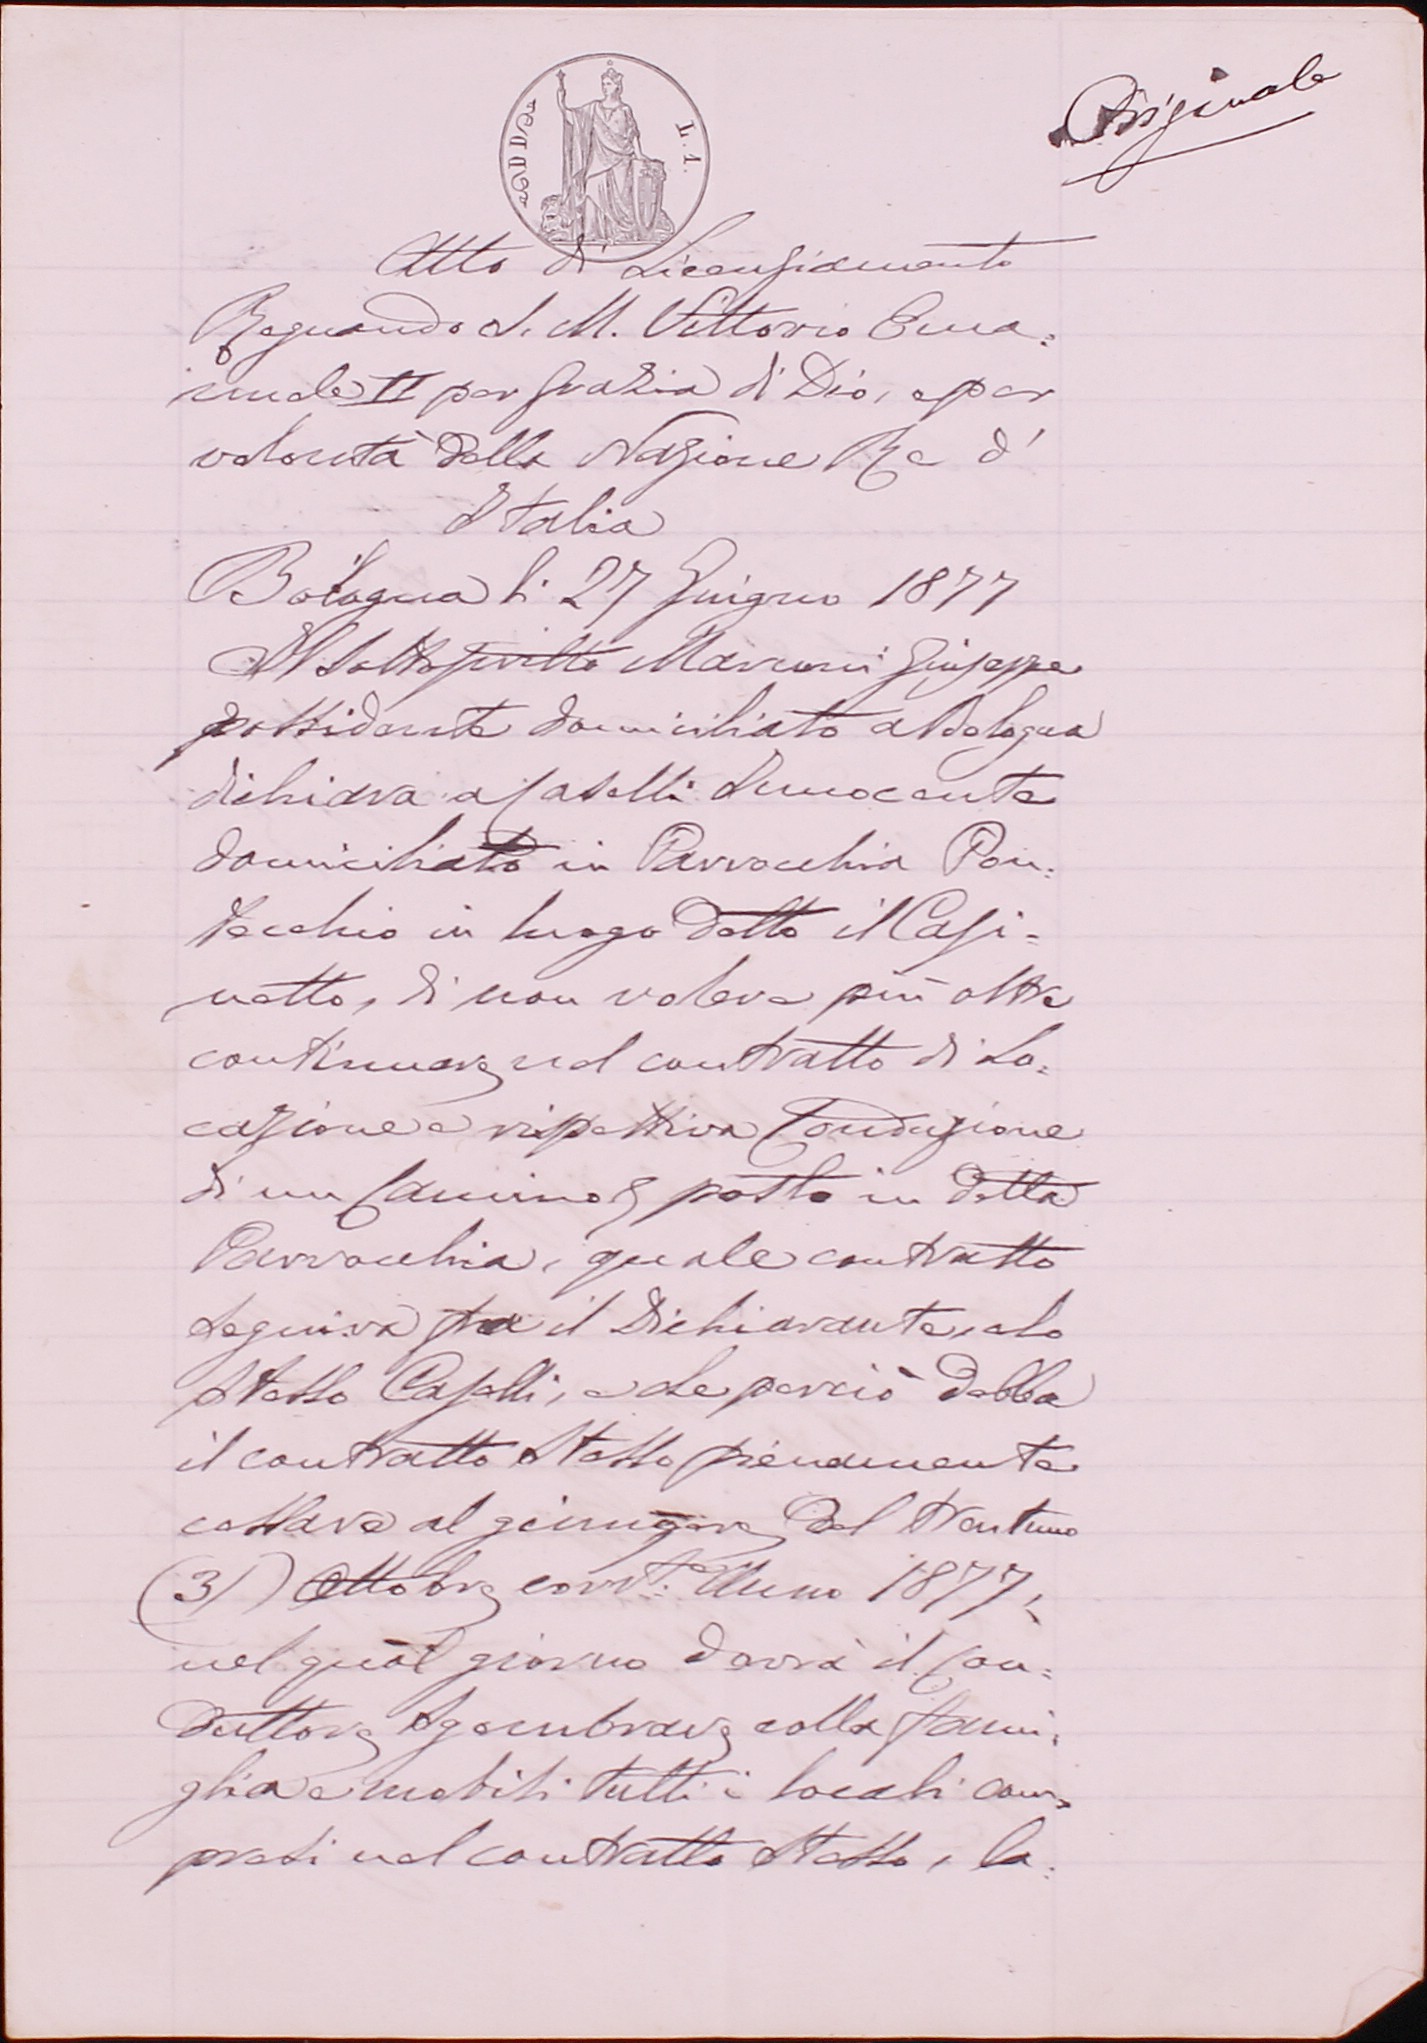 Originale
L. 1.
Atto di Licenziamento
Regnando S. M. Vittorio Ema=
nuele II per grazia di Dio, e per
volontà della Nazione Re d'
Italia
Bologna li 27 Giugno 1877
Il Sottoscritto Marconi Giuseppe
possidente domiciliato a Bologna
dichiara a Caselli Innocente
domiciliato in Parrocchia Pon=
tecchio in luogo detto il Casi=
netto, di non volere più oltre
continuare nel contratto di Lo=
cazione e rispettiva Conduzione
di un Camino e posto in detta
Parrocchia, quale contratto
seguiva fra il Dichiarante, e lo
stesso Caselli, e che perciò debba
il contratto stesso pienamente
cessare al giungere del trentuno
(31) Ottobre corrt. Anno 1877,
nel qual giorno dovrà il Con=
duttore sgombrare colla fami=
glia e mobili tutti i locali com=
presi nel contratto stesso, la=